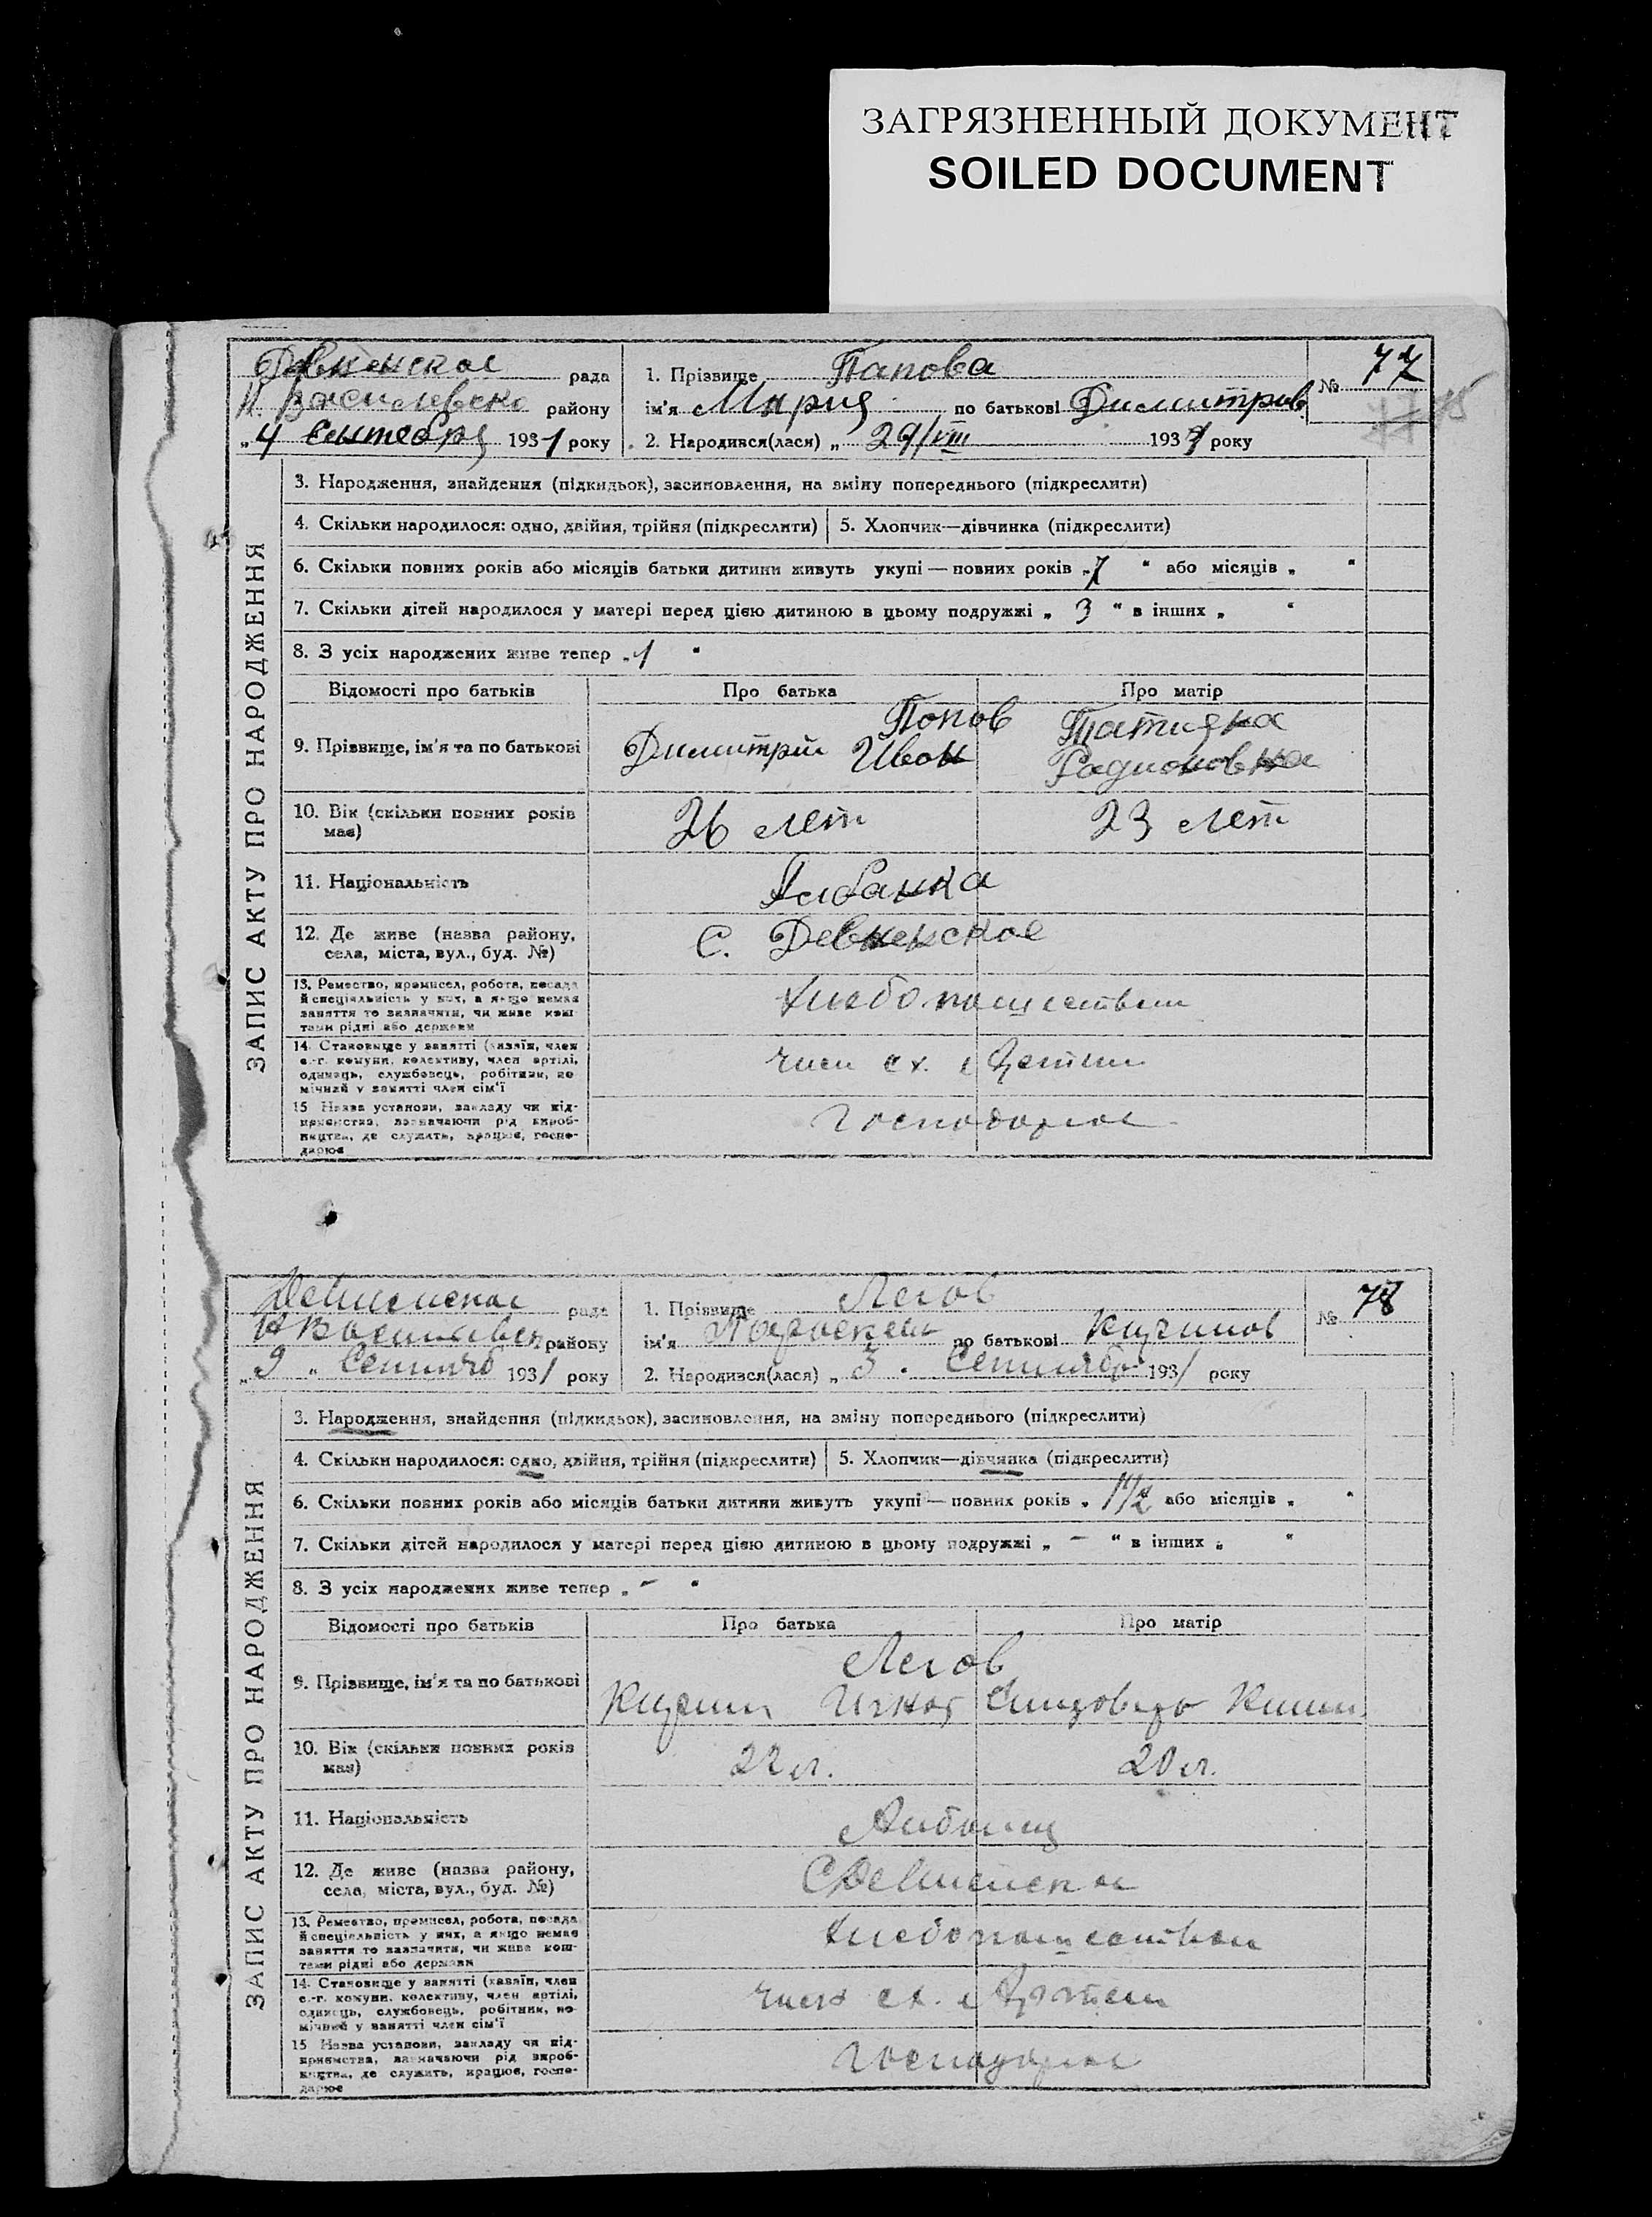 ЗАГРЯЗНЕННЫЙ ДОКУМЕНТ
SOILED DOCUMENT
Девненское рада
Н. Василевско району
„4 Сентебря 1931 року
1. Прізвище Папова
ім'я Мария по батькові Димитрив
2. Народився(лася) „ 29/VIII 1931 року
№ 77
ЗАПИС АКТУ ПРО НАРОДЖЕННЯ
3. Народження, знайдення (підкидьок), засиновлення, на зміну попереднього (підкреслити)
4. Скільки народилося: одно, двійня, трійня (підкреслити) 5. Хлопчик—дівчинка (підкреслити)
6. Скільки повних років або місяців батьки дитини живуть укупі — повних років „7 “ або місяців „ “
7. Скільки дітей народилося у матері перед цією дитиною в цьому подружжі „ 3 “ в інших „ “
8. З усіх народжених живе тепер „1 “
Відомості про батьків Про батька Про матір
9. Прізвище, ім'я та по батькові
Попов Татияна
Димитрий Иван Радионовна
10. Вік (скільки повних років має) 26 лет 23 лет
11. Національність Албанка
12. Де живе (назва району, села, міста, вул., буд. №) С. Девненское
13. Ремество, промисел, робота, посада
й спеціяльність у них, а якщо немає
заняття то зазначити, чи живе кош-
тами рідні або держави
Хлебопашеством
14. Становище у занятті (хазяїн, член
с.-г. комуни, колективу, член артілі,
одинець, службовець, робітник, по-
мічний у занятті член сім'ї
член с.х. Артели
15 Назва установи, закладу чи під-
приємства, зазначаючи рід вироб-
ництва, де служить, працює, госпо-
дарює
Господарює
Девненское рада
Н Василивск району
„9 „ Сентяб 1931 року
1. Прізвище Легов
ім'я по батькові Кирилов
2. Народився(лася) „ 3 . Сентября 1931 року
№ 78
ЗАПИС АКТУ ПРО НАРОДЖЕННЯ
3. Народження, знайдення (підкидьок), засиновлення, на зміну попереднього (підкреслити)
4. Скільки народилося: одно, двійня, трійня (підкреслити) 5. Хлопчик—дівчинка (підкреслити)
6. Скільки повних років або місяців батьки дитини живуть укупі — повних років „ 1 1/2 або місяців „ “
7. Скільки дітей народилося у матері перед цією дитиною в цьому подружжі „ - “ в інших „ “
8. З усіх народжених живе тепер „ - “
Відомості про батьків Про батька Про матір
9. Прізвище, ім'я та по батькові
Легов
Кирилл Игнат
10. Вік (скільки повних років має) 22 л. 20 л.
11. Національність Албанц
12. Де живе (назва району, села, міста, вул., буд. №) С Девненское
13. Ремество, промисел, робота, посада
й спеціяльність у них, а якщо немає
заняття то зазначити, чи живе кош-
тами рідні або держави
Хлебопашеством
14. Становище у занятті (хазяїн, член
с.-г. комуни, колективу, член артілі,
одинець, службовець, робітник, по-
мічний у занятті член сім'ї
член с.х. Артели
15 Назва установи, закладу чи під-
приємства, зазначаючи рід вироб-
ництва, де служить, працює, госпо-
дарює
Господарює